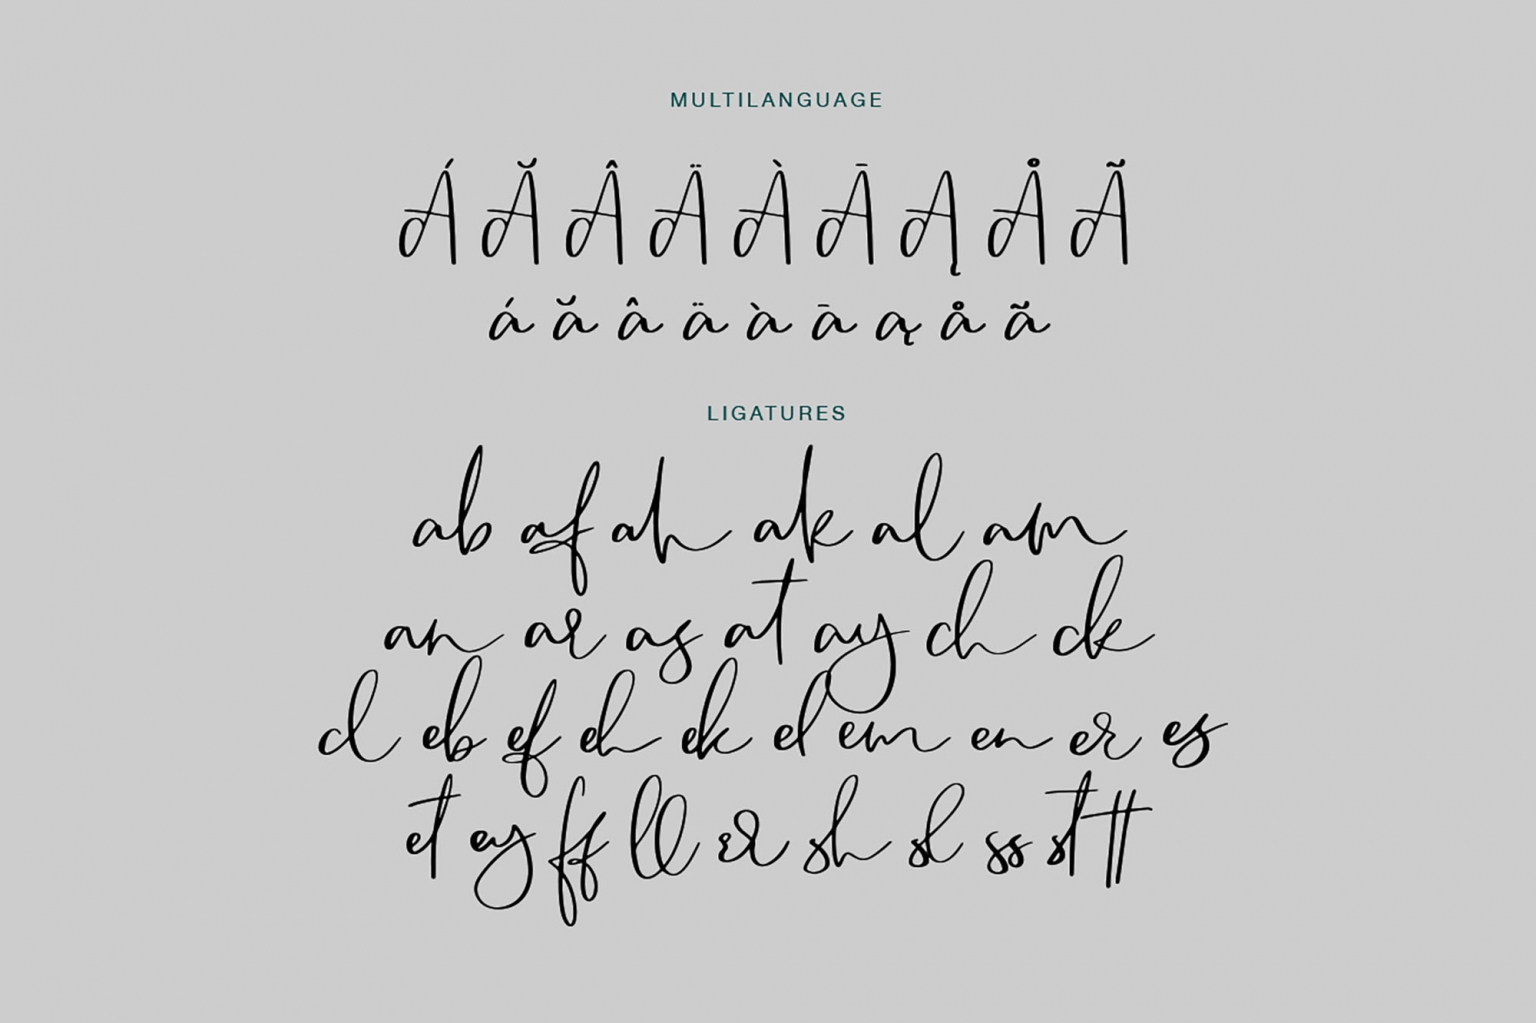 MULTILANGUAGE
Á Ă Â Ä À Ā Ą Å Ã
á ă â ä à ā ą å ã
LIGATURES
ab af ah ak al am
an ar as at ay ch ck
cl eb ef eh ek el em en er es
et ey ff ll rr sh sl ss st tt